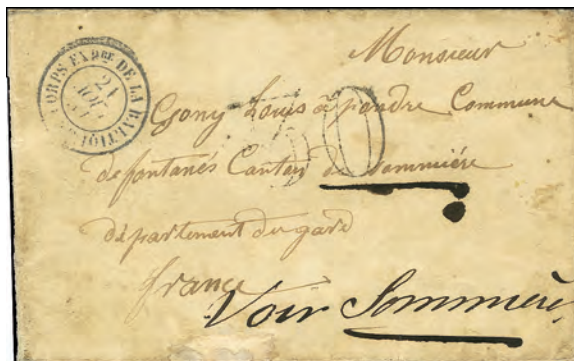 CORPS EXPRE DE LA BALTIQUE
21
Monsieur
Louis à pondre Commune
de fontanés Canton de Sommiére
30
département du gard
france
Voir Sommière